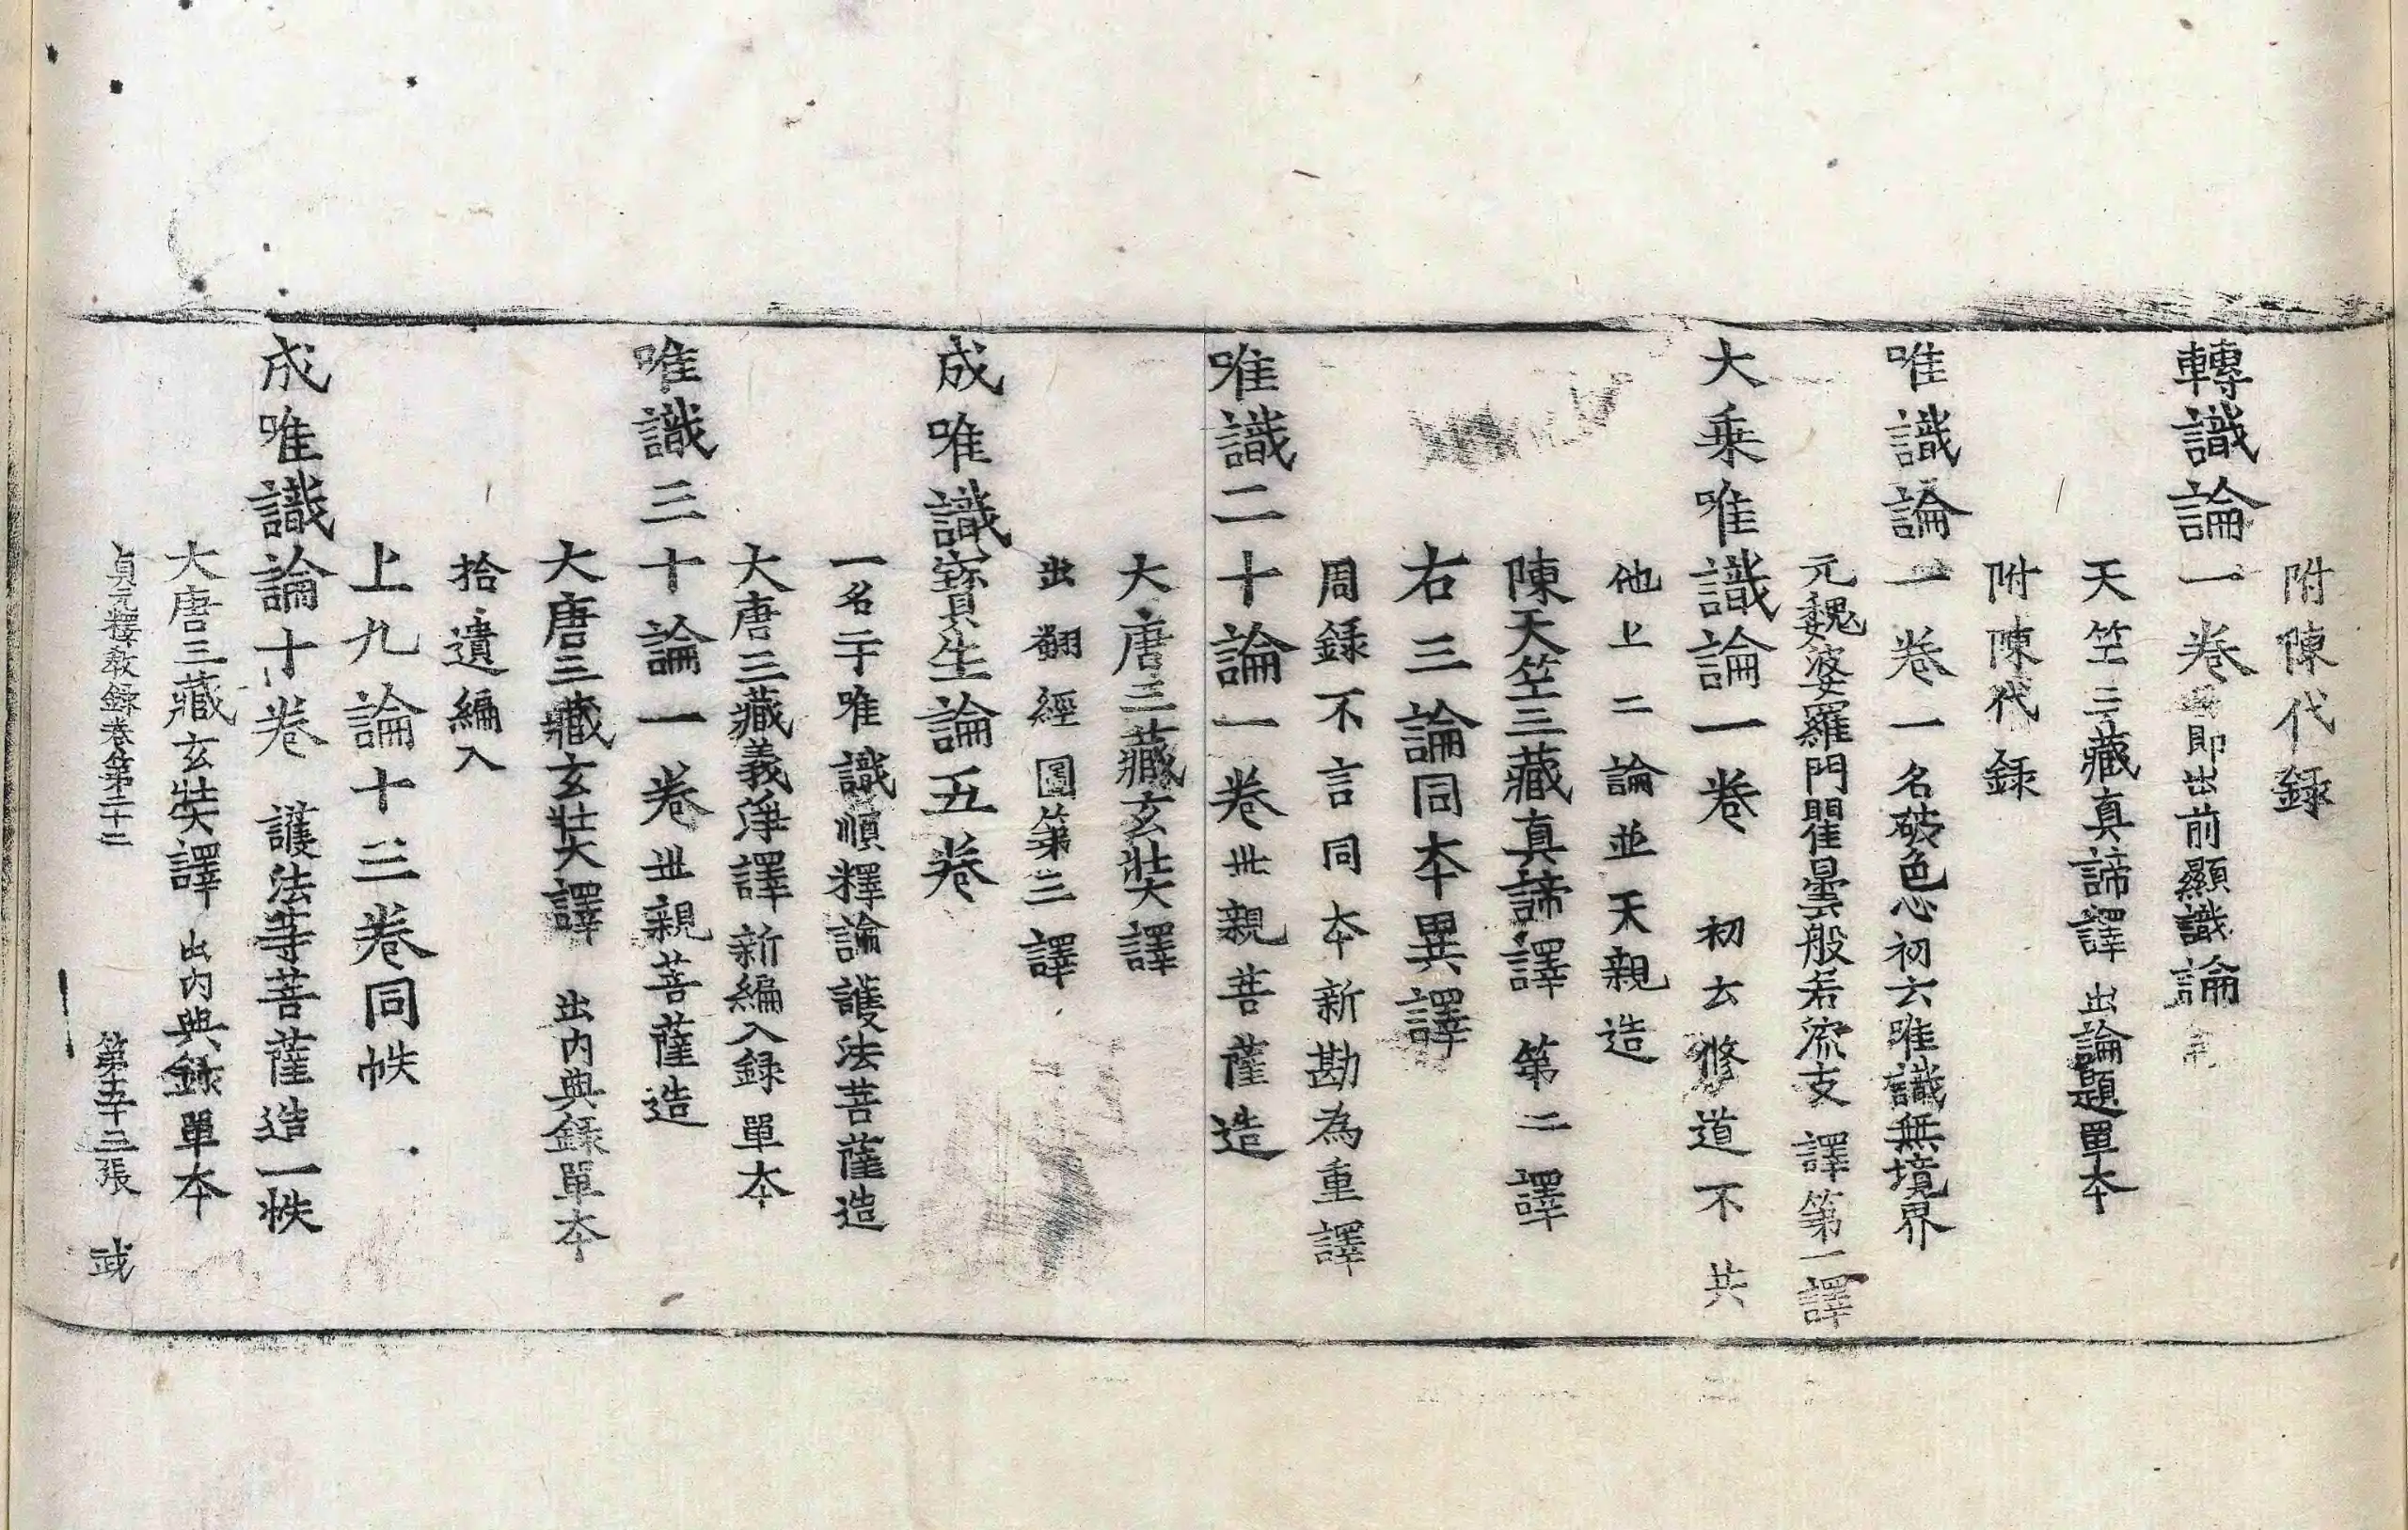 附陳代録
轉識論一卷即出前顯識論
天竺三藏真諦譯出論題單本
附陳代録
唯識論一卷一名破色心初云唯識無境界
元魏婆羅門瞿曇般若流支譯第一譯
大乗唯識論一卷初云修道不共
他上二論並天親造
陳天竺三藏真諦譯第二譯
右三論同本異譯
周録不言同本新勘為重譯
唯識二十論一卷世親菩薩造
大唐三藏玄奘譯
出翻經圖第三譯
成唯識寳生論五卷
一名二十唯識順釋論護法菩薩造
大唐三藏義淨譯新編入録單本
唯識三十論一卷世親菩薩造
大唐三藏玄奘譯出内典録單本
拾遺編入
上九論十三卷同帙
成唯識論十卷護法等菩薩造一帙
大唐三藏玄奘譯出内典録單本
貞元釋教録卷第二十二 第五十二張 武